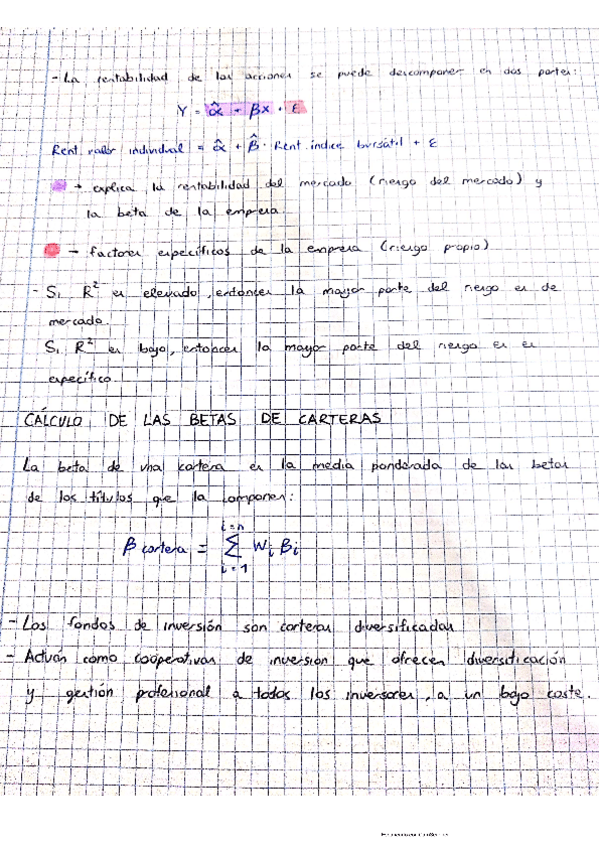 - La rentabilidad de las acciones se puede descomponer en dos partes:
Y = α̂ + βx + ε
Rent. valor individual = α̂ + β̂ · Rent. índice bursátil + ε
→ explica la rentabilidad del mercado (riesgo del mercado) y
la beta de la empresa.
→ factores específicos de la empresa (riesgo propio)
- Si R² es elevado, entonces la mayor parte del riesgo es de
mercado.
Si R² es bajo, entonces la mayor parte del riesgo es es
específico.
CÁLCULO DE LAS BETAS DE CARTERAS
La beta de una cartera es la media ponderada de las betas
de los títulos que la componen:
β cartera = Σ (i=1, i=n) Wi Bi
- Los fondos de inversión son carteras diversificadas
- Actúan como cooperativas de inversión que ofrecen diversificación
y gestión profesional a todos los inversores, a un bajo coste.